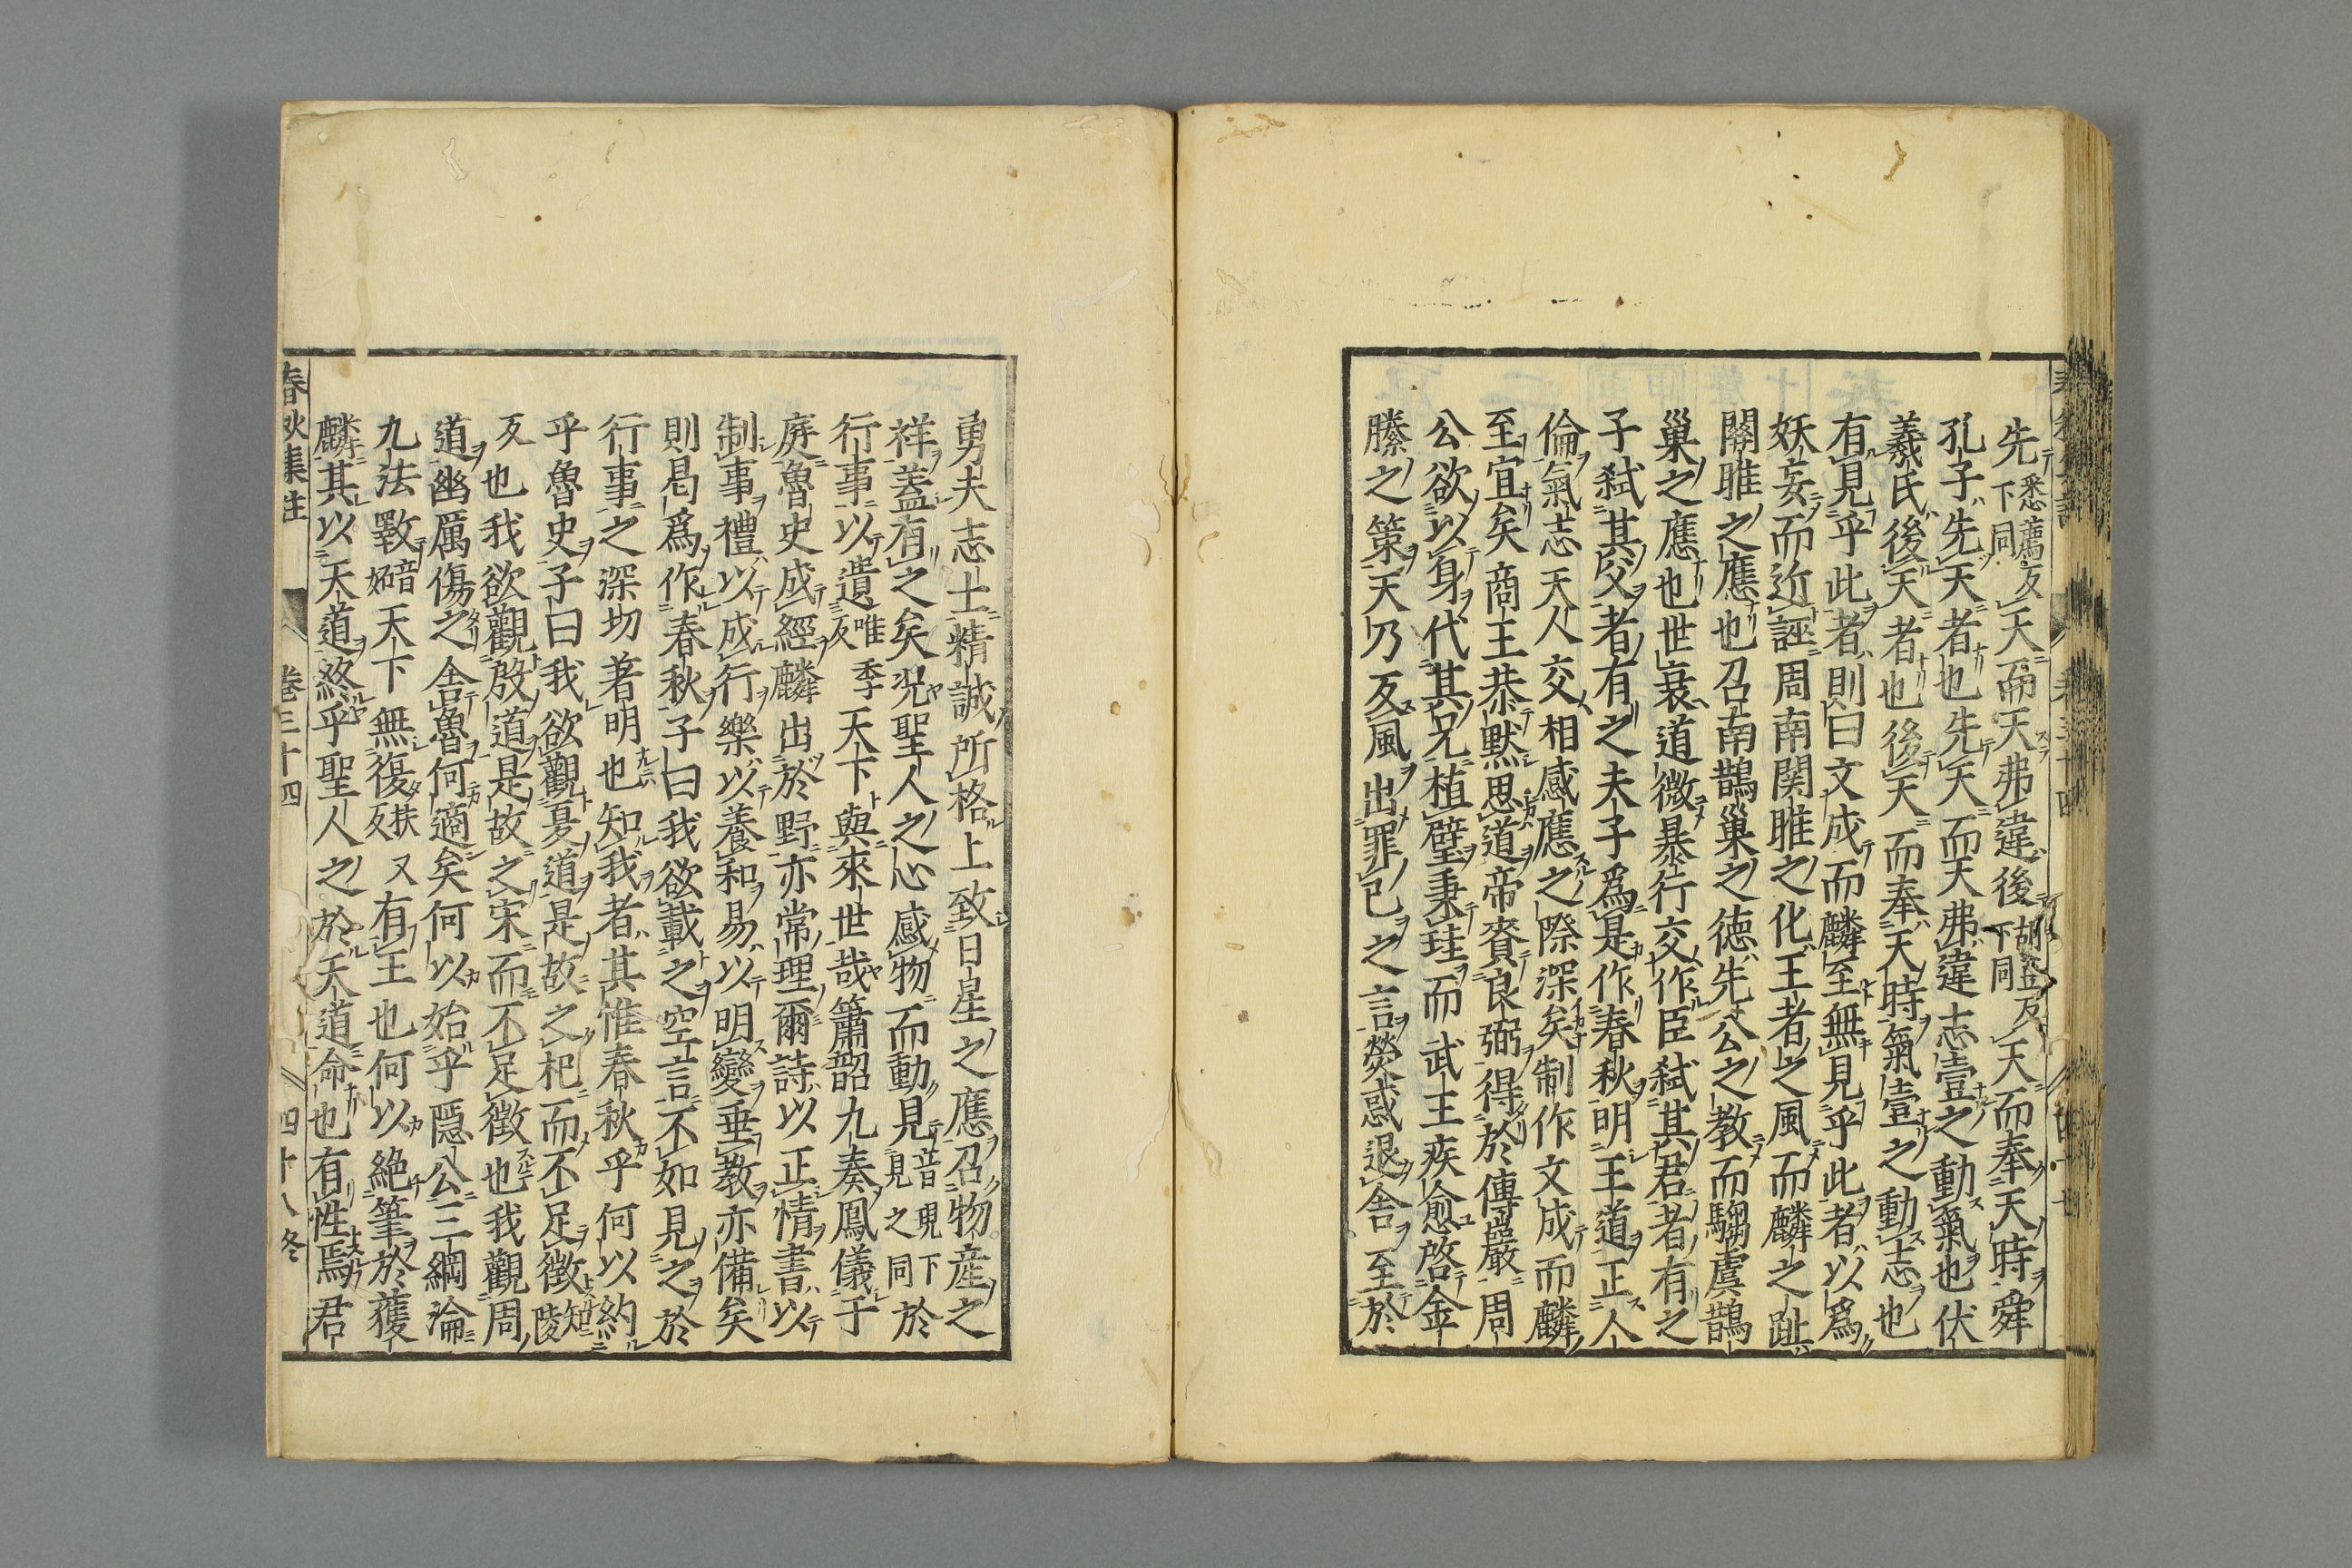 先悉薦反下同天而天弗違後胡豆反下同天而奉天時舜
孔子先天者也先天而天弗違志壹之動氣也伏
羲氏後天者也後天而奉天時氣壹之動志也
有見乎此者則曰文成而麟至無見乎此者以爲
妖妄而近誣周南関雎之化王者之風而麟之趾
關雎之應也召南鵲巢之德先公之教而騶虞鵲
巢之應也世衰道微暴行交作臣弑其君者有之
子弑其父者有之夫子爲是作春秋明王道正人
倫氣志天人交相感應之際深矣制作文成而麟
至宜矣商王恭默思道帝賚良弼得於傅巖周
公欲以身代其兄植璧秉珪而武王疾愈啓金
縢之策天乃反風出罪己之言熒惑退舍至於
勇夫志士精誠所格上致日星之應召物產之
祥蓋有之矣况聖人之心感物而動見音現下見之同於
行事以遺唯季反天下與來世哉簫韶九奏鳳儀于
庭魯史成經麟出於野亦常理爾詩以正情書以
制事禮以成行樂以養和易以明變垂教亦備矣
則曷爲作春秋子曰我欲載之空言不如見之於
行事之深切著明也知我者其惟春秋乎何以約
乎魯史子曰我欲觀夏道是故之杞而不足徵知陵
反也我欲觀殷道是故之宋而不足徵也我觀周
道幽厲傷之舍魯何適矣何以始乎隱公三綱淪
九法斁音妬天下無復扶又反有王也何以絶筆於獲
麟其以天道終乎聖人之於天道命也有性焉君
春秋集註 卷三十四 四十八終